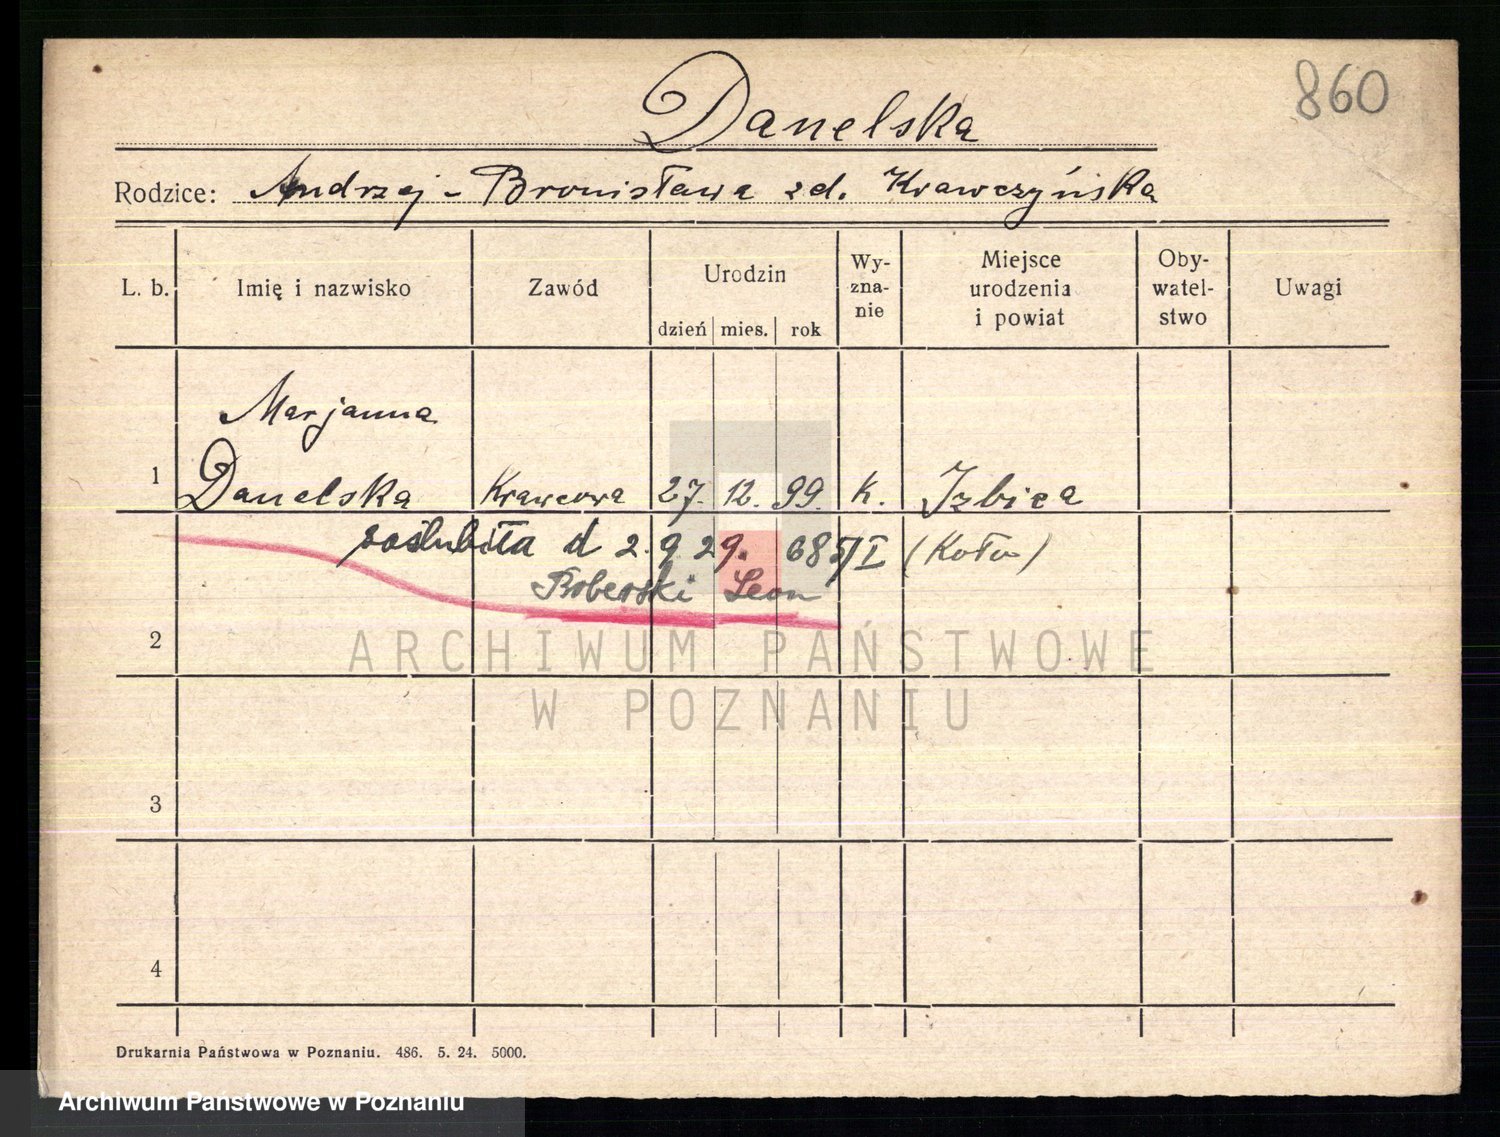 860
Danelska
Rodzice: Andrzej - Bronisława zd. Krawczyńska
L. b. Imię i nazwisko Zawód Urodzin dzień mies. rok Wy-zna-nie Miejsce urodzenia i powiat Oby-watel-stwo Uwagi
Marjanna
1 Danelska Krawcowa 27. 12. 99. k. Izbica
zaślubiła d 2. 9 29. 685/I (Koło)
Boberski Leon
2
ARCHIWUM PAŃSTWOWE
W POZNANIU
3
4
Drukarnia Państwowa w Poznaniu. 486. 5. 24. 5000.
Archiwum Państwowe w Poznaniu